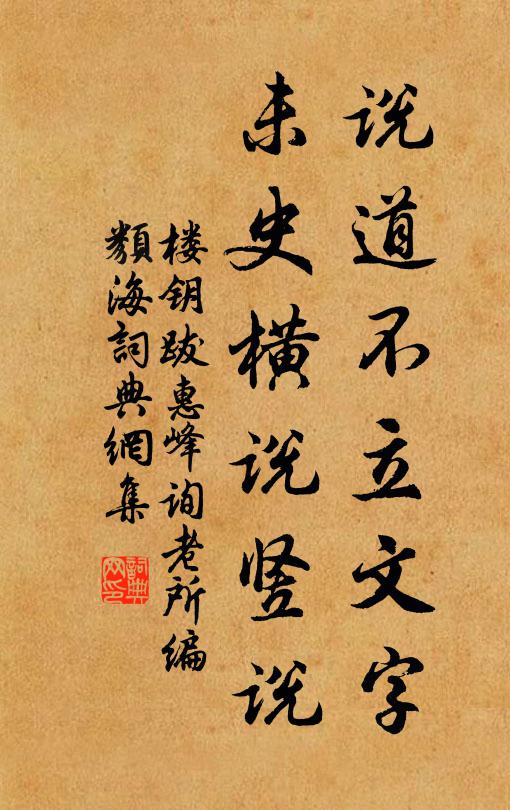 说道不立文字
未史横说竖说
楼钥跋惠峰询老所编
類海詞典網集
詞典网印